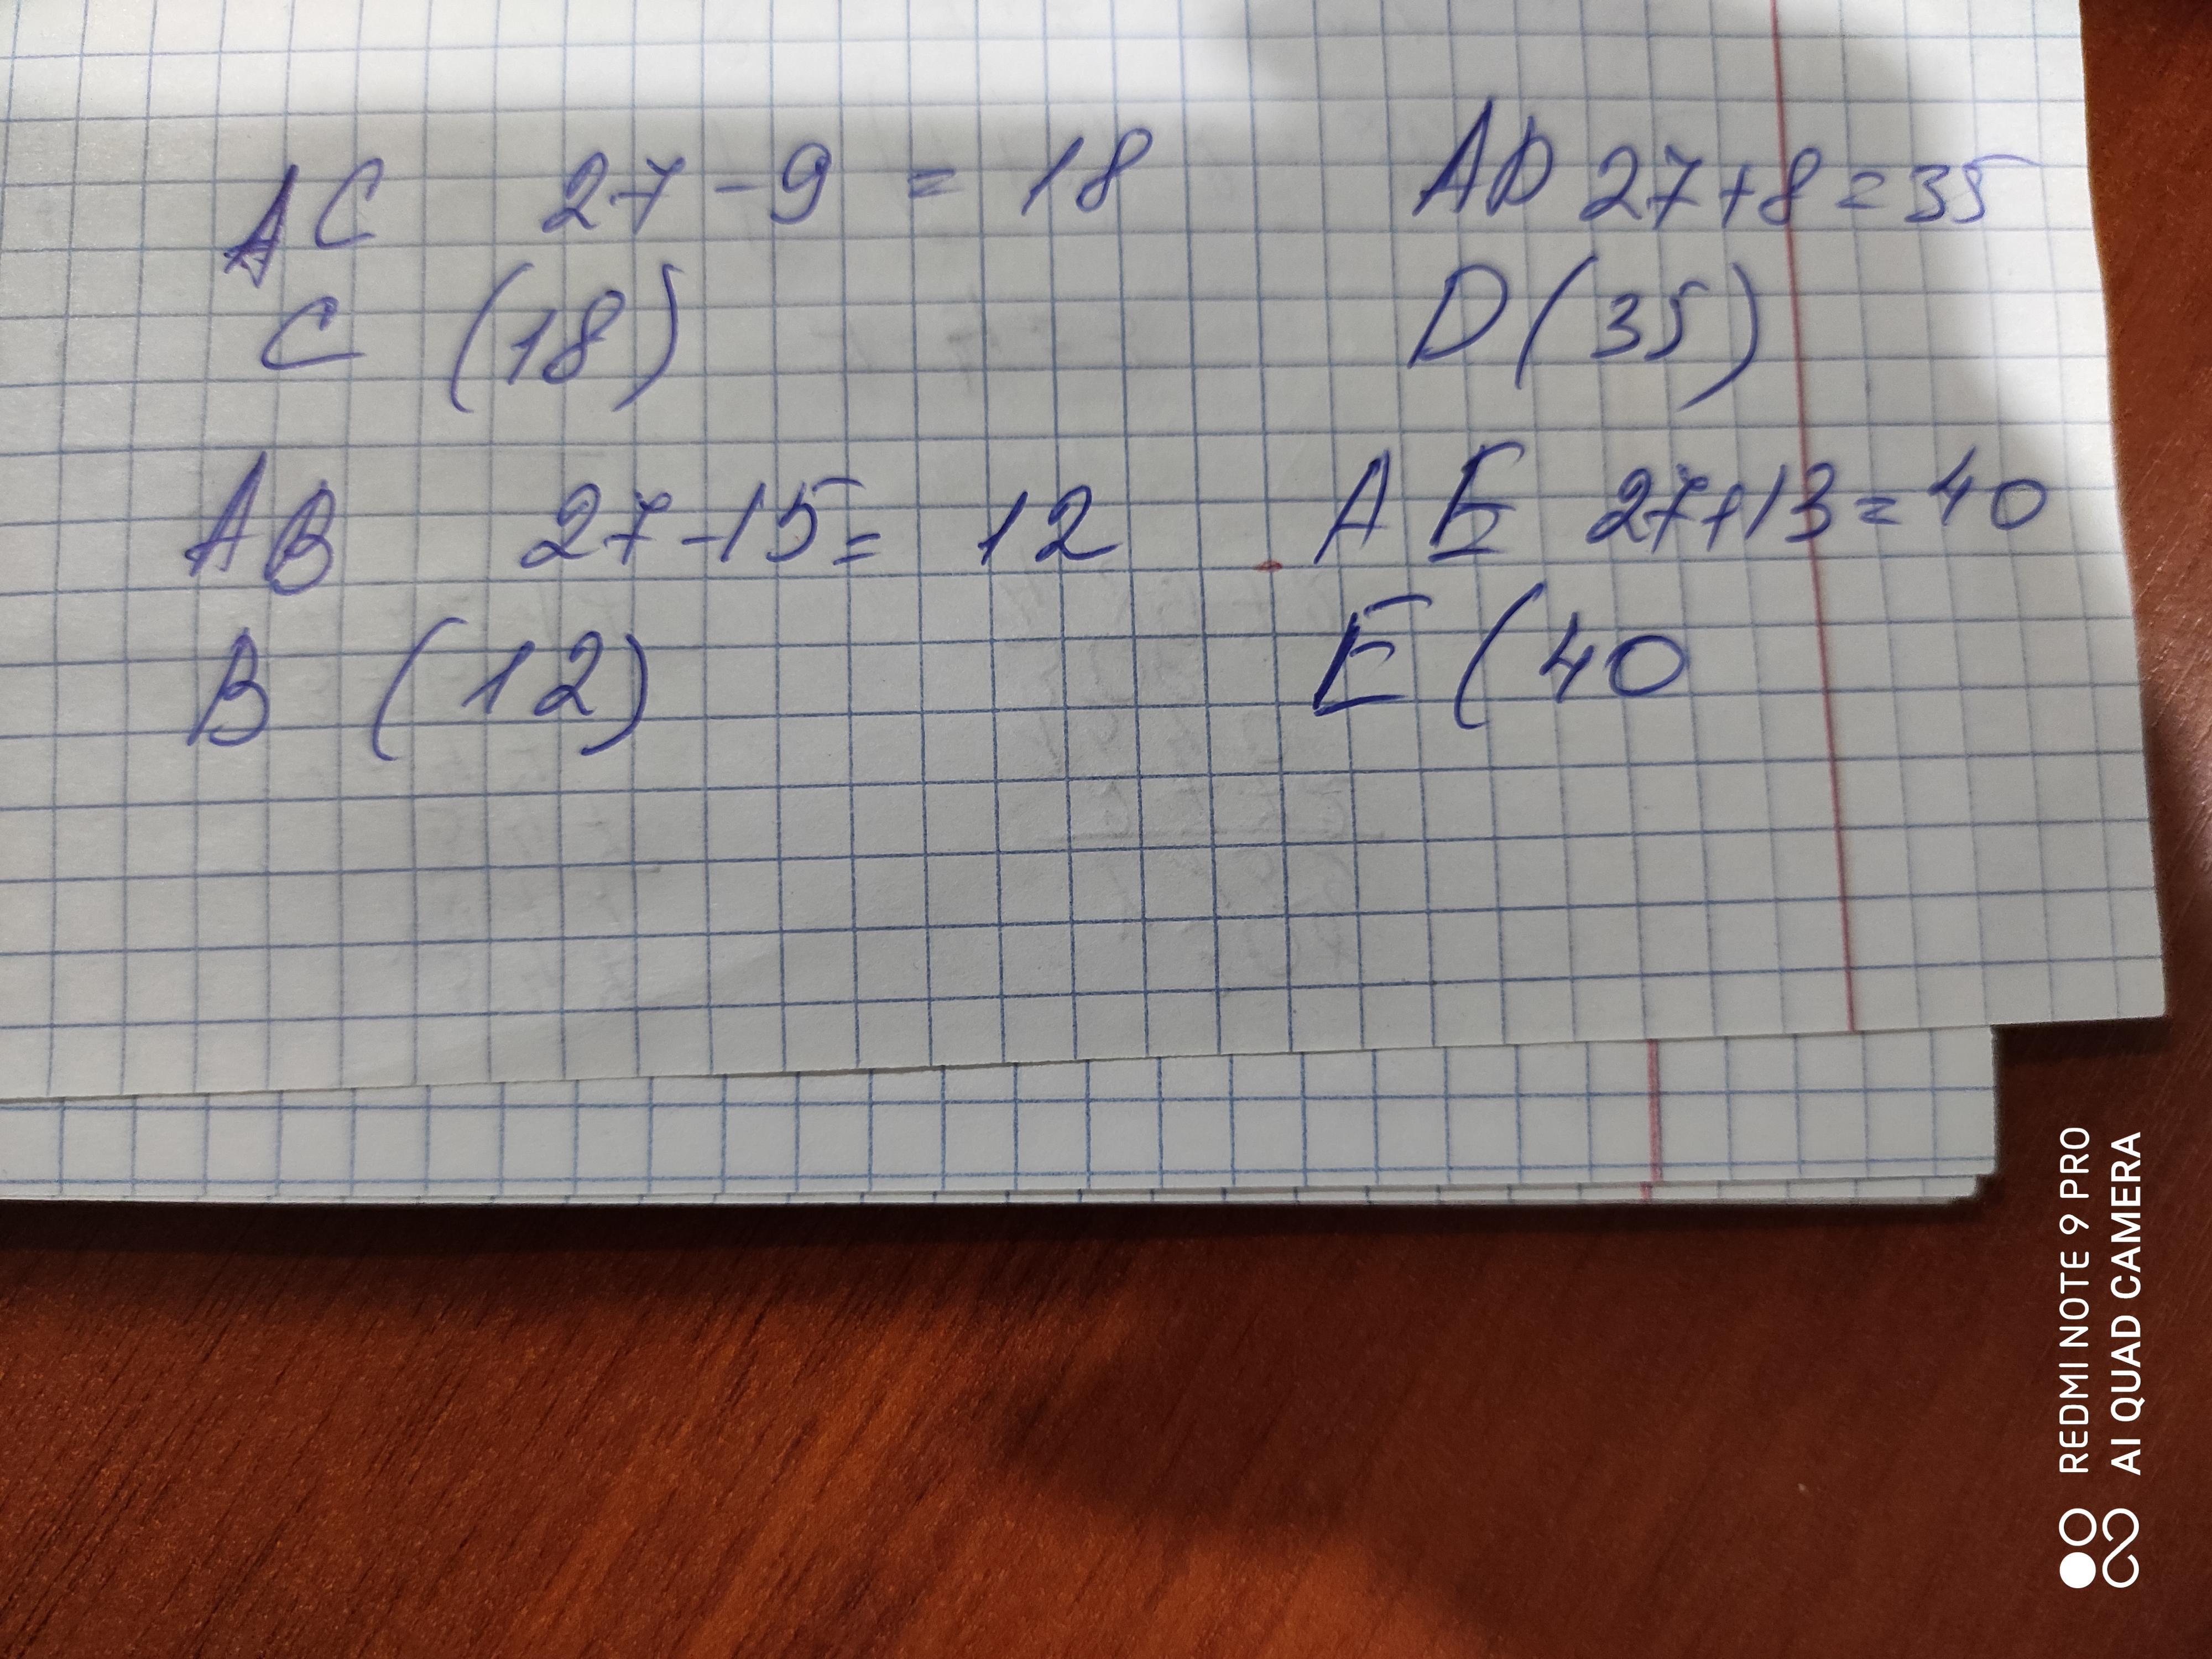 AC 27-9 = 18
C (18)
AB 27-15= 12
B (12)
AD 27+8=35
D(35)
AE 27+13=40
E (40
REDMI NOTE 9 PRO
AI QUAD CAMERA